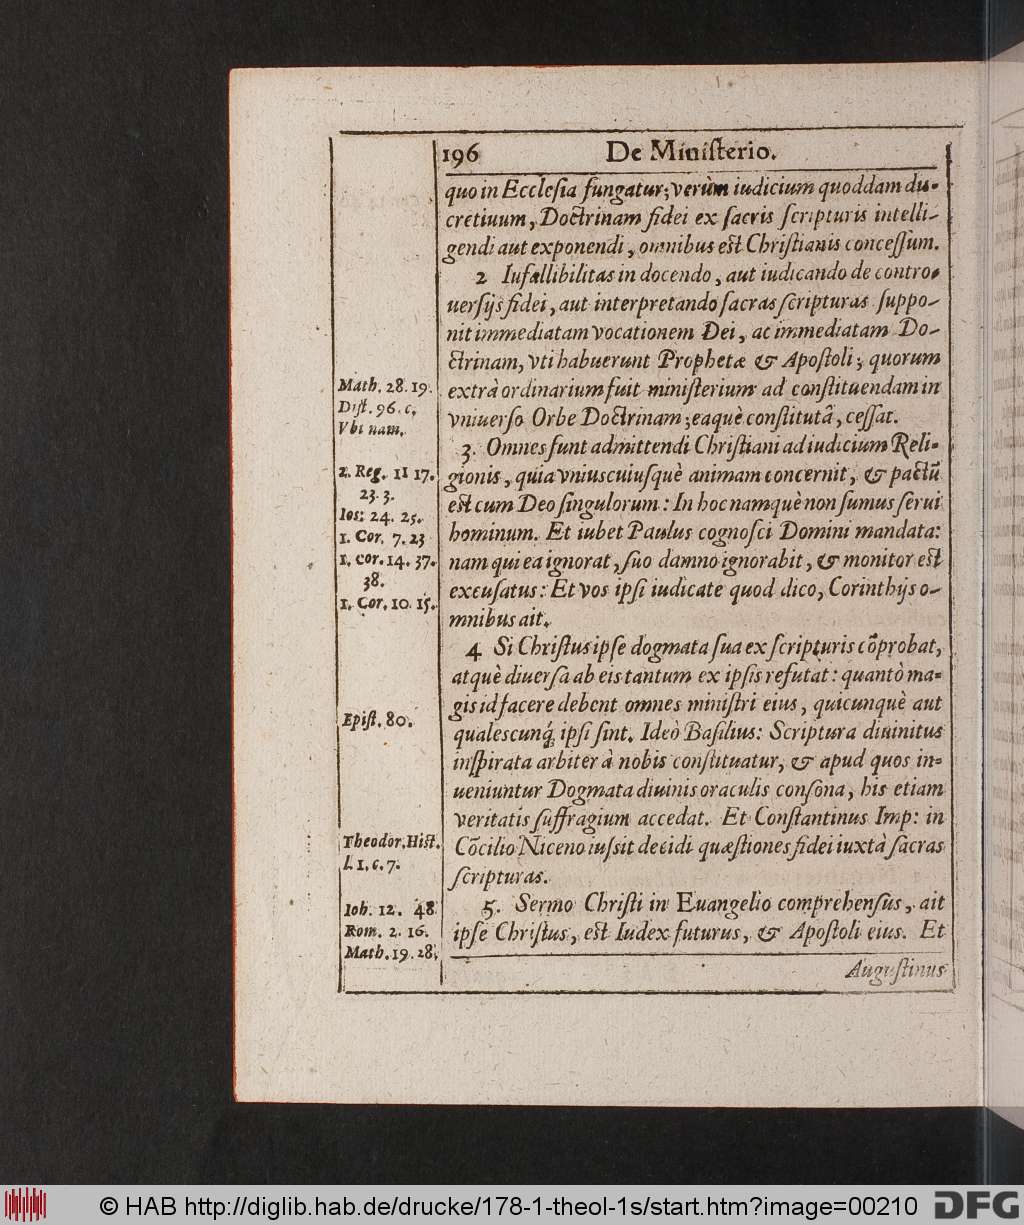 196 De Miniſterio.
quo in Eccleſia fungatur; verùm iudicium quoddam du-
cretiuum, Doctrinam fidei ex ſacris ſcripturis intelli-
gendi aut exponendi, omnibus eſt Chriſtianis conceſſum.
2 Iufallibilitas in docendo, aut iudicando de contro-
uerſijs fidei, aut interpretando ſacras ſcripturas ſuppo-
nit immediatam vocationem Dei, ac immediatam Do-
ctrinam, vti habuerunt Prophetæ & Apoſtoli; quorum
Math. 28. 19.
extrà ordinarium fuit miniſterium ad conſtituendam in
Diſt. 96. c.
vniuerſo Orbe Doctrinam; eaquè conſtitutâ, ceſſat.
Vbi nam.
3. Omnes ſunt admittendi Chriſtiani ad iudicium Reli-
2. Reg. 11 17.
gionis, quia vniuscuiuſquè animam concernit, & pactũ
23. 3.
eſt cum Deo ſingulorum: In hoc namquè non ſumus ſerui
Ios: 24. 25.
hominum. Et iubet Paulus cognoſci Domini mandata:
1. Cor. 7. 23
nam qui ea ignorat, ſuo damno ignorabit, & monitor eſt
1. cor. 14. 37.
38.
excuſatus: Et vos ipſi iudicate quod dico, Corinthijs o-
1. Cor. 10. 15.
mnibus ait.
4 Si Chriſtus ipſe dogmata ſua ex ſcripturis cõprobat,
atquè diuerſa ab eis tantum ex ipſis refutat: quantò ma-
gis id facere debent omnes miniſtri eius, quicunquè aut
Epiſt. 80.
qualescunq́; ipſi ſint. Ideò Baſilius: Scriptura diuinitus
inſpirata arbiter à nobis conſtituatur, & apud quos in-
ueniuntur Dogmata diuinis oraculis conſona, his etiam
veritatis ſuffragium accedat. Et Conſtantinus Imp: in
Theodor. Hiſt.
Cõcilio Niceno iuſsit decidi quæſtiones fidei iuxtà ſacras
l. 1. c. 7.
ſcripturas.
5. Sermo Chriſti in Euangelio comprehenſus, ait
Ioh. 12. 48
ipſe Chriſtus, eſt Iudex futurus, & Apoſtoli eius. Et
Rom. 2. 16.
Math. 19. 28.
Auguſtinus
© HAB http://diglib.hab.de/drucke/178-1-theol-1s/start.htm?image=00210
DFG